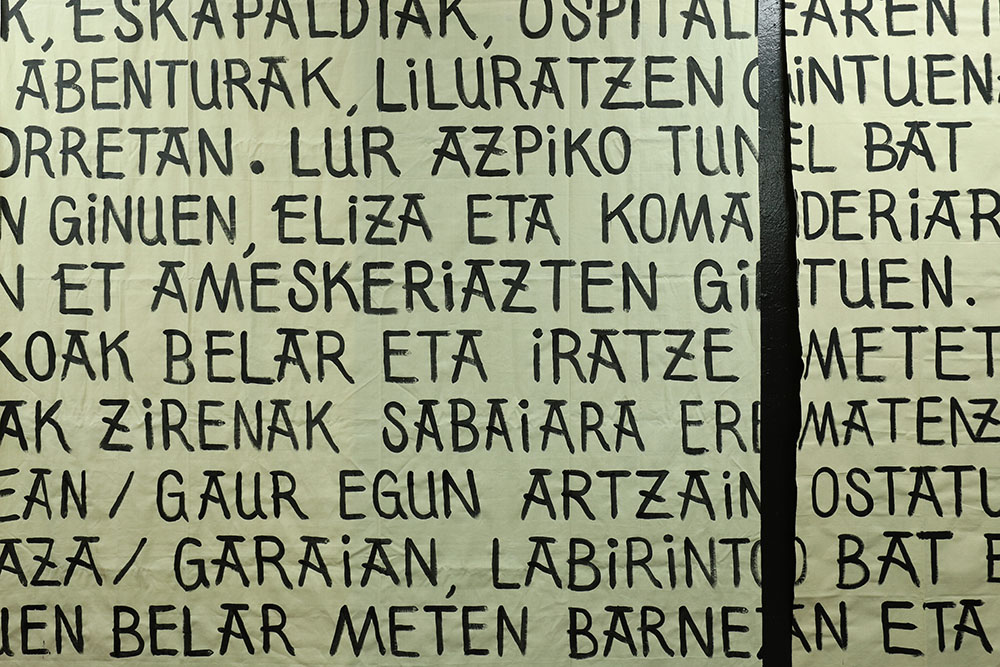 K, ESKAPALDIAK, OSPITALEAREN
ABENTURAK, LiLURATZEN GiNTUEN.
ORRETAN. LUR AZPiKO TUNEL BAT
N GiNUEN, ELiZA ETA KOMANDERiAR
N ET AMESKERiAZTEN GiNTUEN.
KOAK BELAR ETA iRATZE METET
AK ZiRENAK SABAiARA EREMATENZ
EAN / GAUR EGUN ARTZAiN OSTATU
AZA / GARAiAN, LABiRiNTO BAT E
UEN BELAR METEN BARNEAN ETA